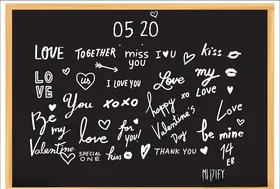 05 20
LOVE TOGETHER miss you I ♥ U kiss
LOVE us I LOVE YOU Love my
You xoxo happy Valentine's Day Love
Be my Valentine love for you! be mine
SPECIAL ONE kiss THANK YOU 14 FEB
MIDIFY